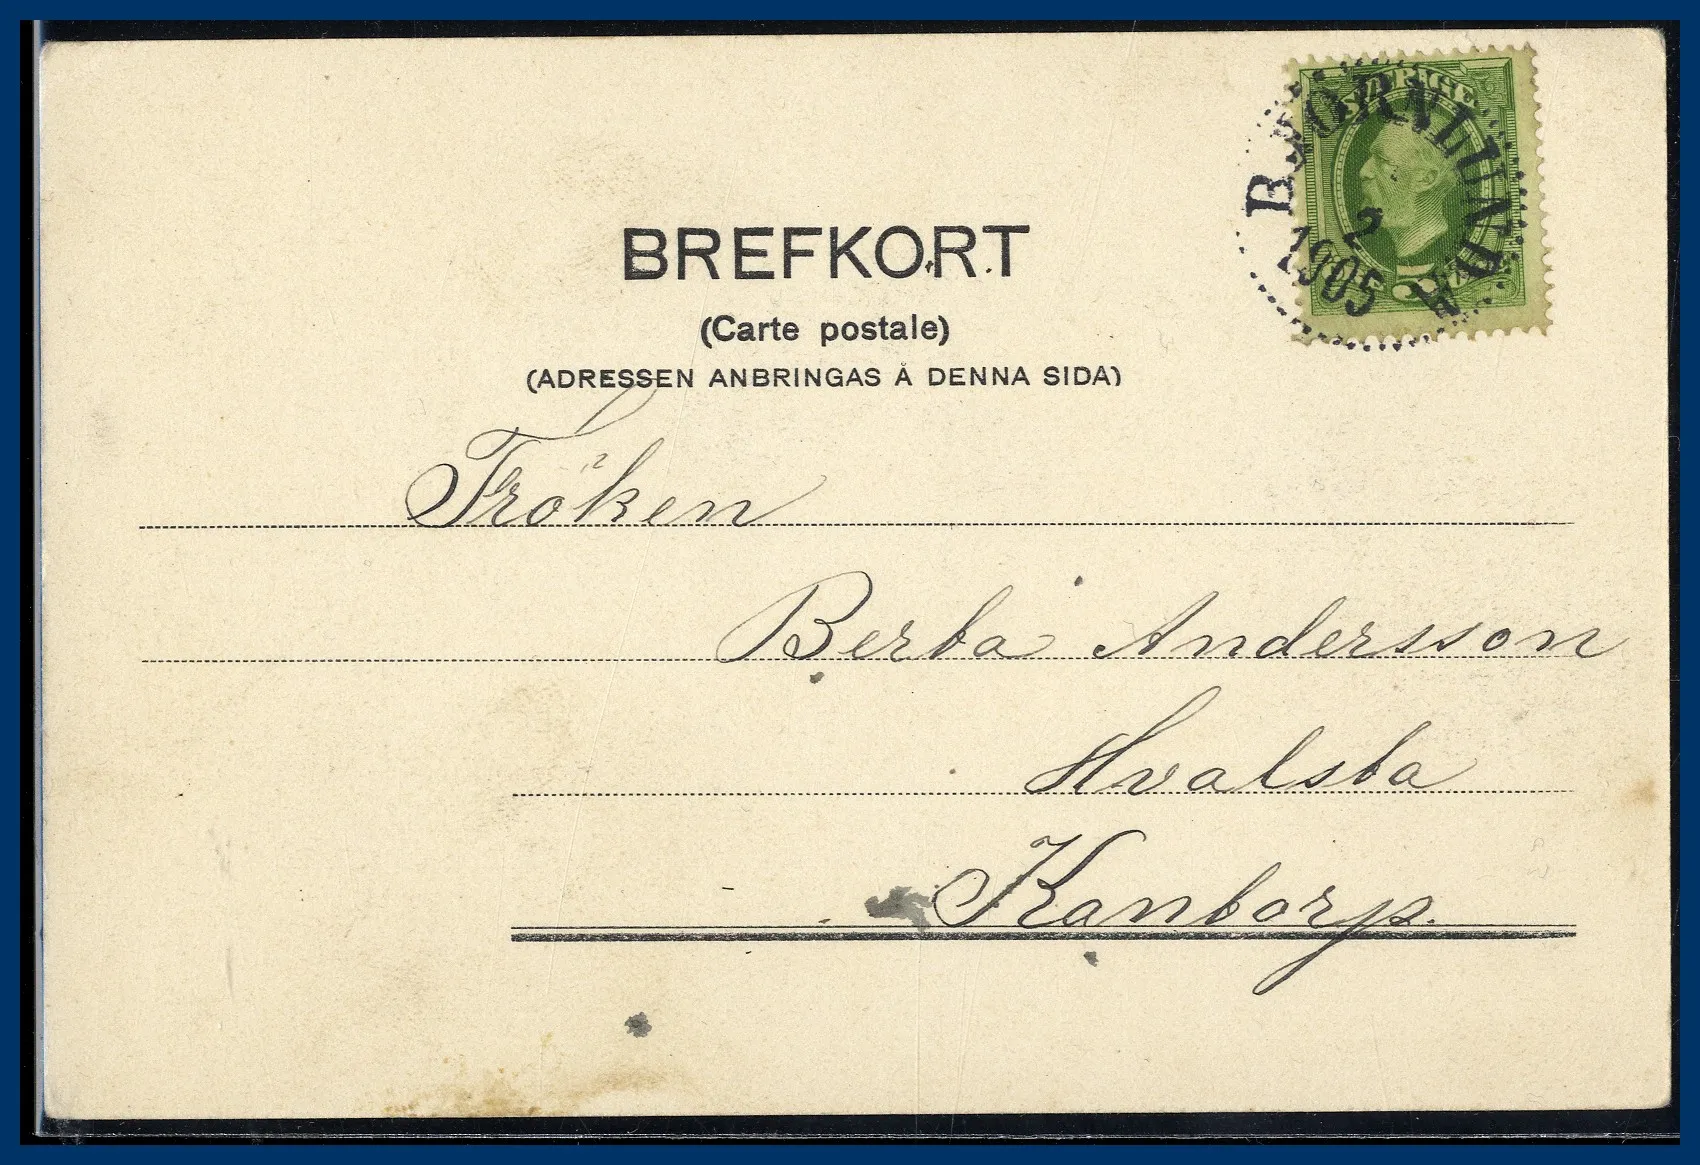 BREFKORT
(Carte postale)
(ADRESSEN ANBRINGAS Å DENNA SIDA)
SVERIGE
BJÖRNLUNDA
2
1905
5
Fröken
Berta Andersson
Hvalsta
Kantorp.